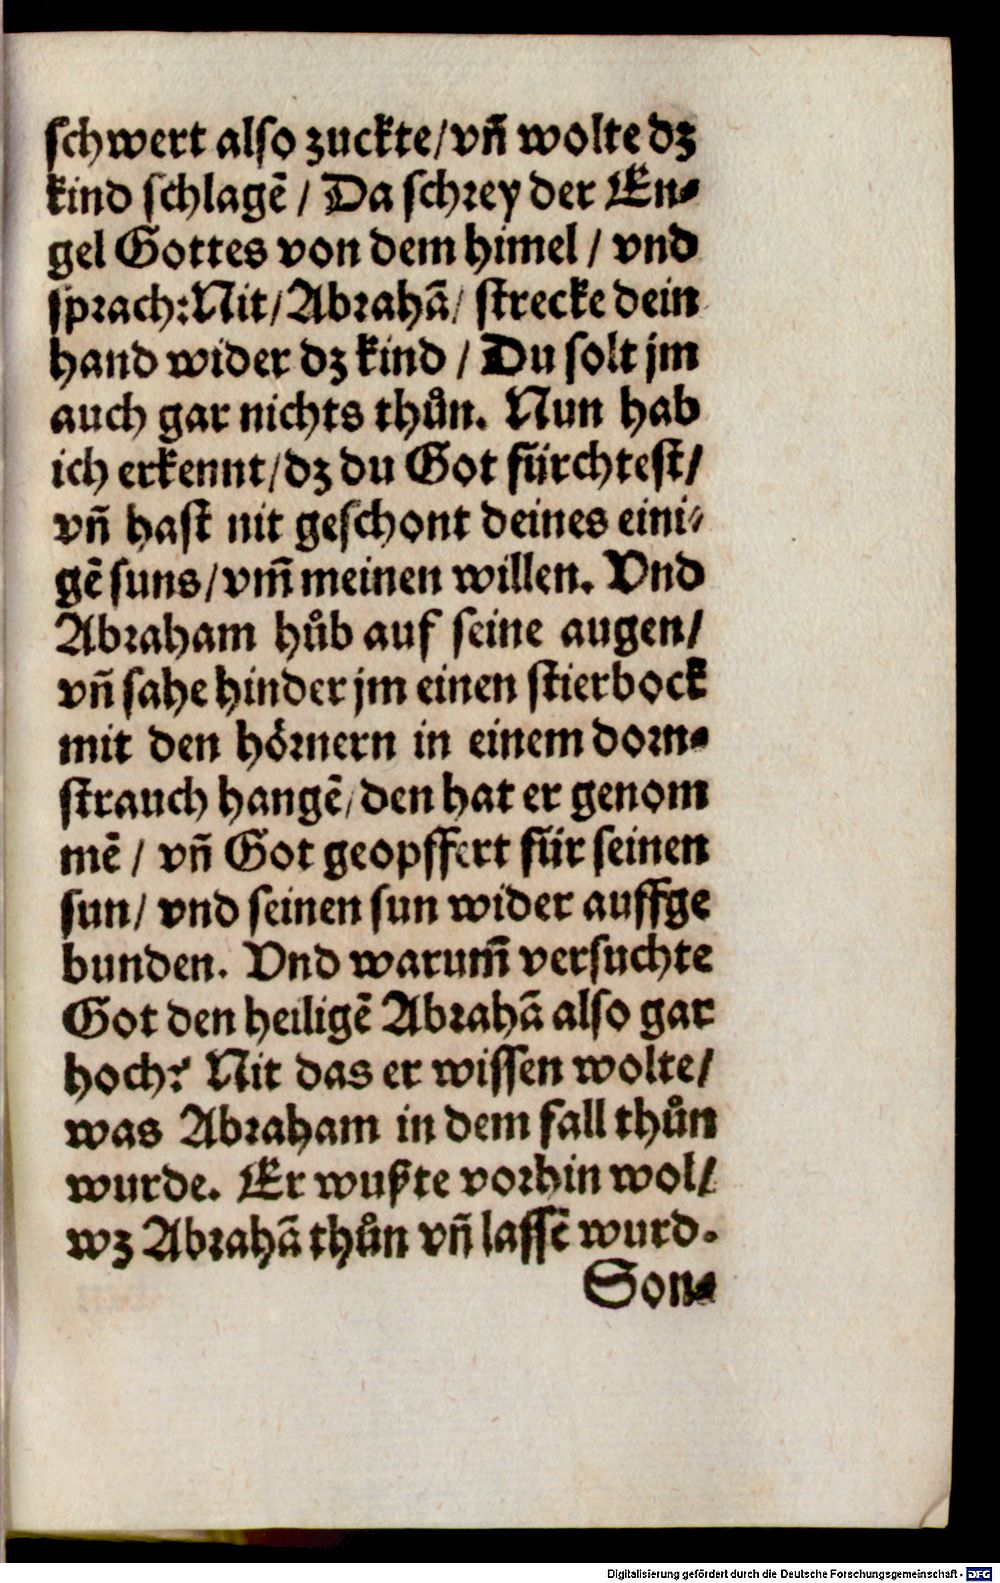 schwert also zuckte/ vñ wolte dz
kind schlagẽ / Da schrey der En⸗
gel Gottes von dem himel / vnd
sprach: Nit/ Abrahã/ strecke dein
hand wider dz kind / Du solt jm
auch gar nichts thůn. Nun hab
ich erkennt/ dz du Got fürchtest/
vñ hast nit geschont deines eini⸗
gẽ suns/ vm̃ meinen willen. Vnd
Abraham hůb auf seine augen/
vñ sahe hinder jm einen stierbock
mit den hörnern in einem dorn⸗
strauch hangẽ/ den hat er genom
mẽ / vñ Got geopffert für seinen
sun/ vnd seinen sun wider auffge
bunden. Vnd warum̃ versuchte
Got den heiligẽ Abrahã also gar
hoch? Nit das er wissen wolte/
was Abraham in dem fall thůn
wurde. Er wußte vorhin wol/
wz Abrahã thůn vñ lassẽ wurd.
Son⸗
Digitalisierung gefördert durch die Deutsche Forschungsgemeinschaft - DFG